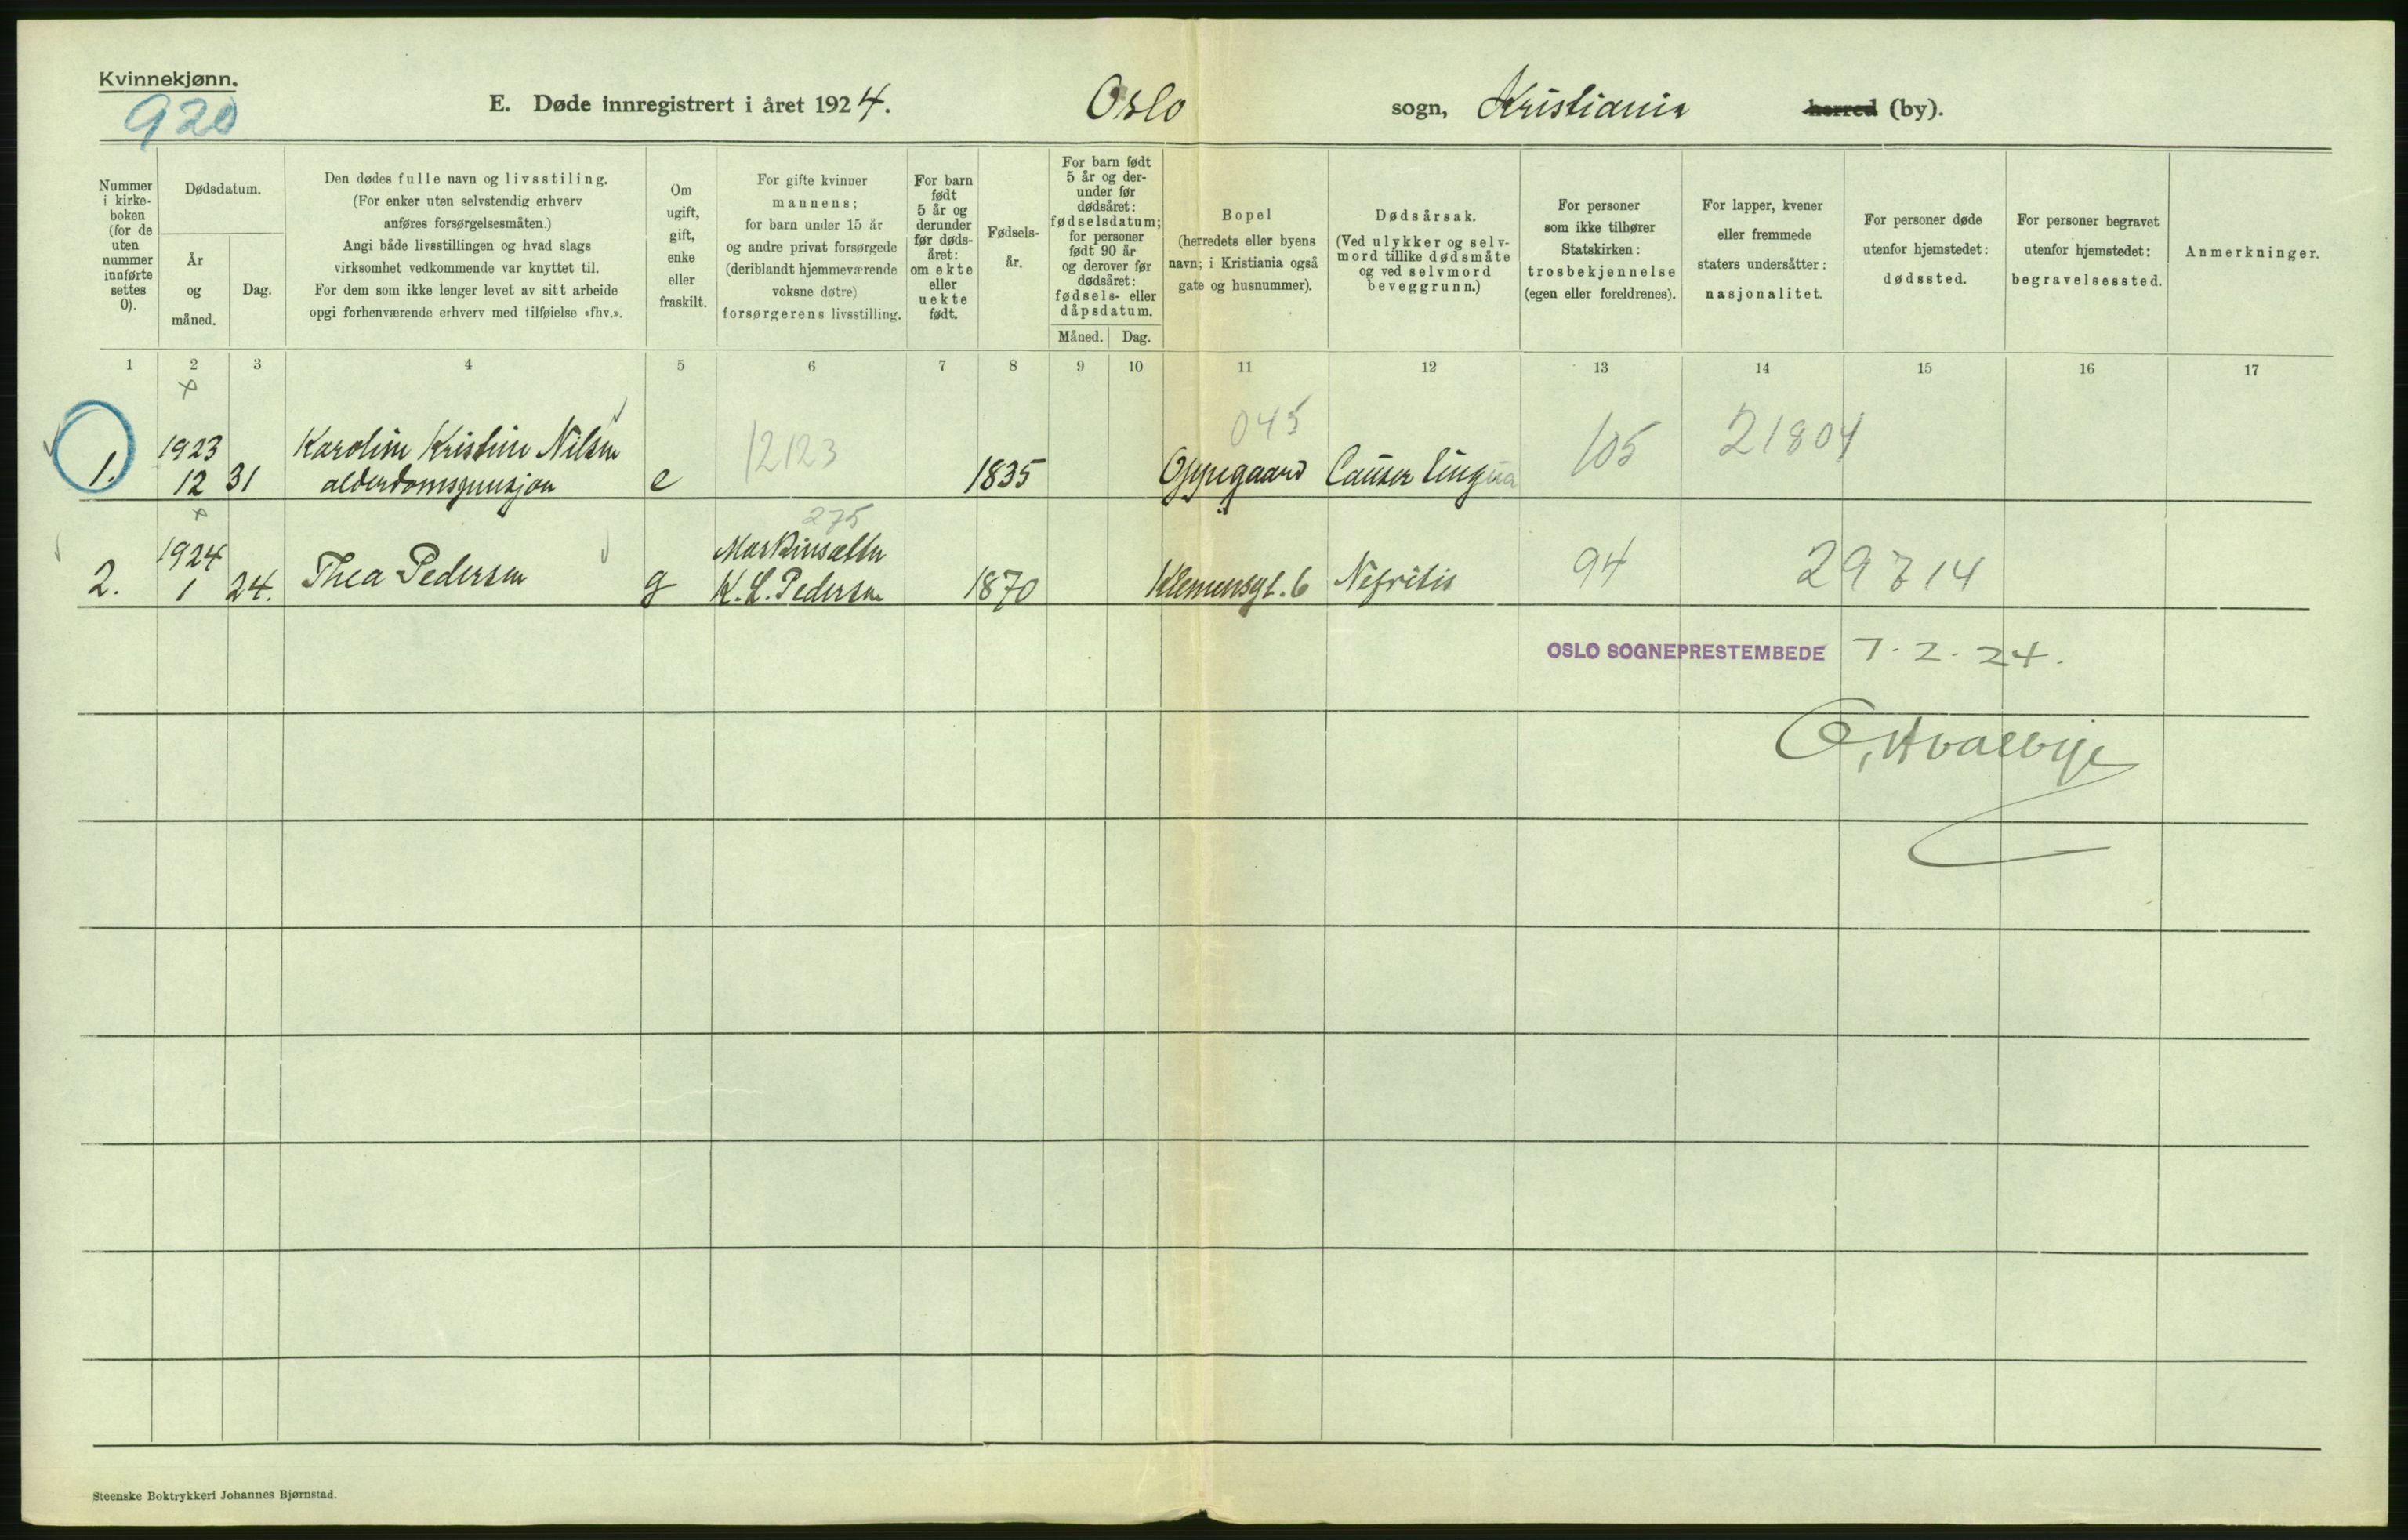 Kvinnekjønn.
920
E. Døde innregistrert i året 1924. Oslo sogn, Kristiania herred (by).
Nummer
i kirke-
boken
(for de
uten
nummer
innførte
settes
0).
Dødsdatum.
År
og
måned.
Dag.
Den dødes fulle navn og livsstiling.
(For enker uten selvstendig erhverv
anføres forsørgelsesmåten.)
Angi både livsstillingen og hvad slags
virksomhet vedkommende var knyttet til.
For dem som ikke lenger levet av sitt arbeide
opgi forhenværende erhverv med tilføielse «fhv.».
Om
ugift,
gift,
enke
eller
fraskilt.
For gifte kvinner
mannens;
for barn under 15 år
og andre privat forsørgede
(deriblandt hjemmeværende
voksne døtre)
forsørgerens livsstilling.
For barn
født
5 år og
derunder
før døds-
året:
om ekte
eller
uekte
født.
Fødsels-
år.
For barn født
5 år og der-
under før
dødsåret:
fødselsdatum;
for personer
født 90 år
og derover før
dødsåret:
fødsels- eller
dåpsdatum.
Måned. Dag.
Bopel
(herredets eller byens
navn; i Kristiania også
gate og husnummer).
Dødsårsak.
(Ved ulykker og selv-
mord tillike dødsmåte
og ved selvmord
beveggrunn.)
For personer
som ikke tilhører
Statskirken:
trosbekjennelse
(egen eller foreldrenes).
For lapper, kvener
eller fremmede
staters undersåtter:
nasjonalitet.
For personer døde
utenfor hjemstedet:
dødssted.
For personer begravet
utenfor hjemstedet:
begravelsessted.
Anmerkninger.
1 2 3 4 5 6 7 8 9 10 11 12 13 14 15 16 17
x
1923 Karoline Kristine Nilsen 12123 045 105 21804
1. 12 31 alderdomspensjon e 1835 Oppegaard Cancer lingua
x 275
1924 Maskinsætter
2. 1 24. Thea Pedersen g K. L. Pedersen 1870 Klemensgt. 6 Nefritis 94 29714
OSLO SOGNEPRESTEMBEDE 7.2.24.
Steenske Boktrykkeri Johannes Bjørnstad.